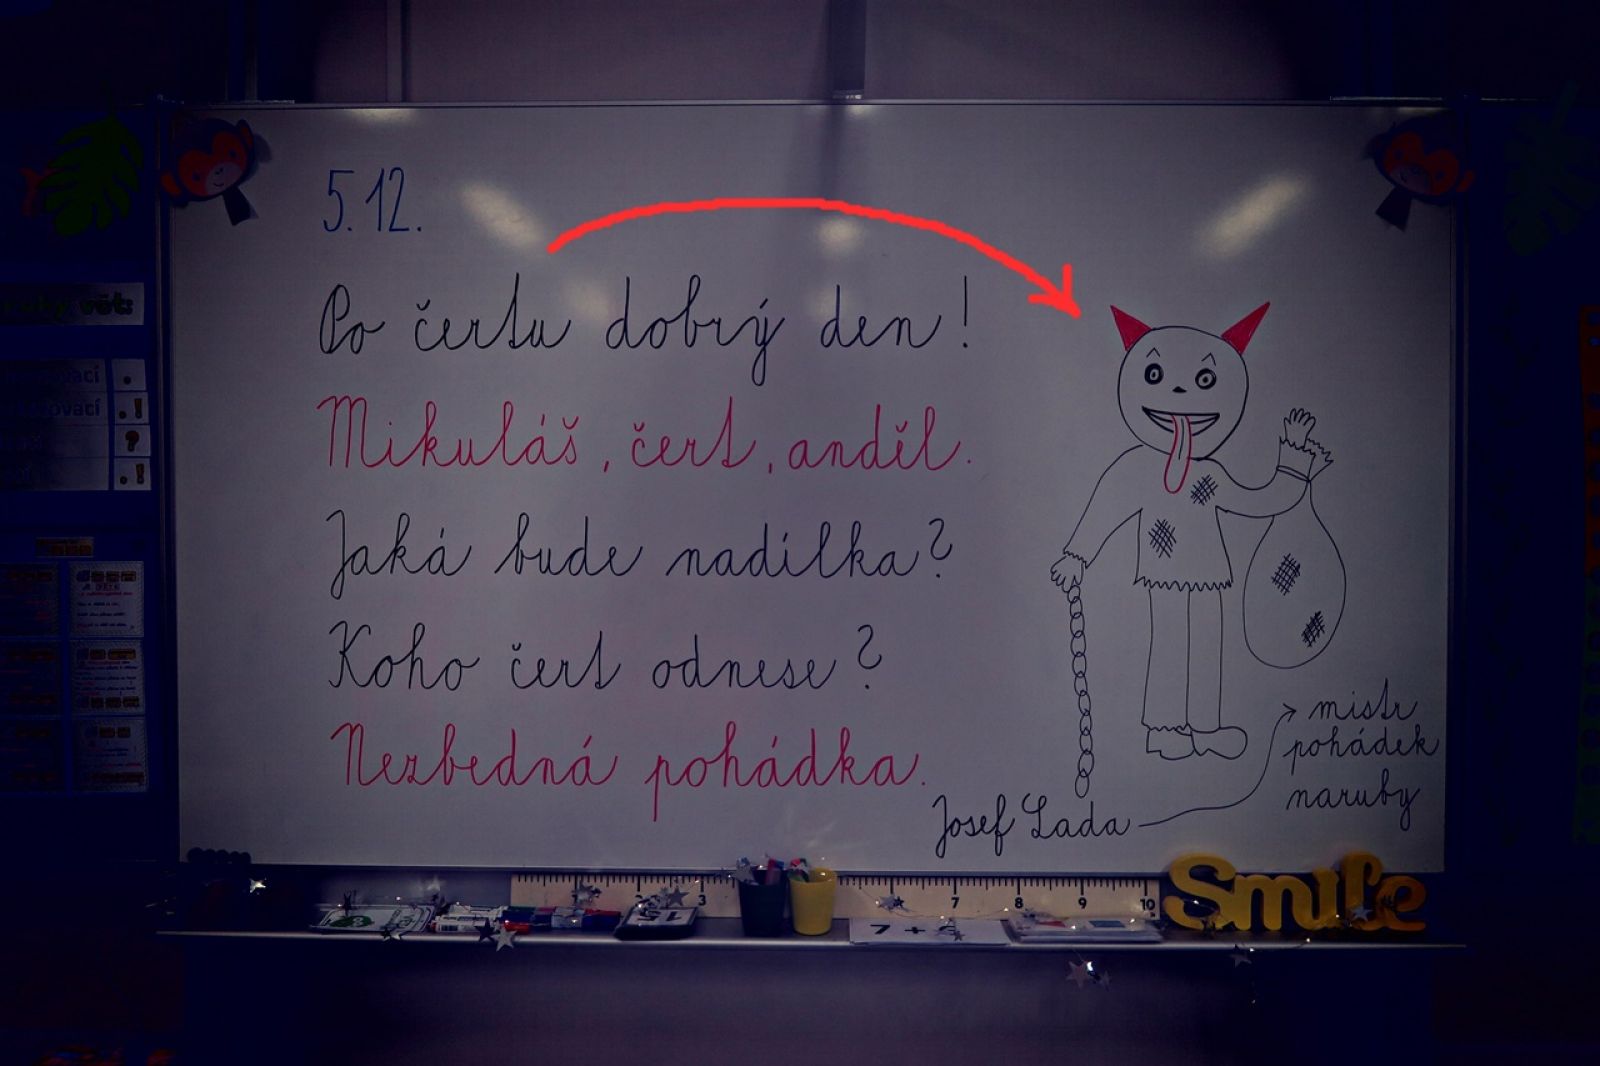 5.12.
Po čertu dobrý den!
Mikuláš, čert, anděl.
Jaká bude nadílka?
Koho čert odnese?
Nezbedná pohádka.
Josef Lada
mistr
pohádek
naruby
vět:
.
.!
?
.!
3
7 8 9 10
7 +
Smile